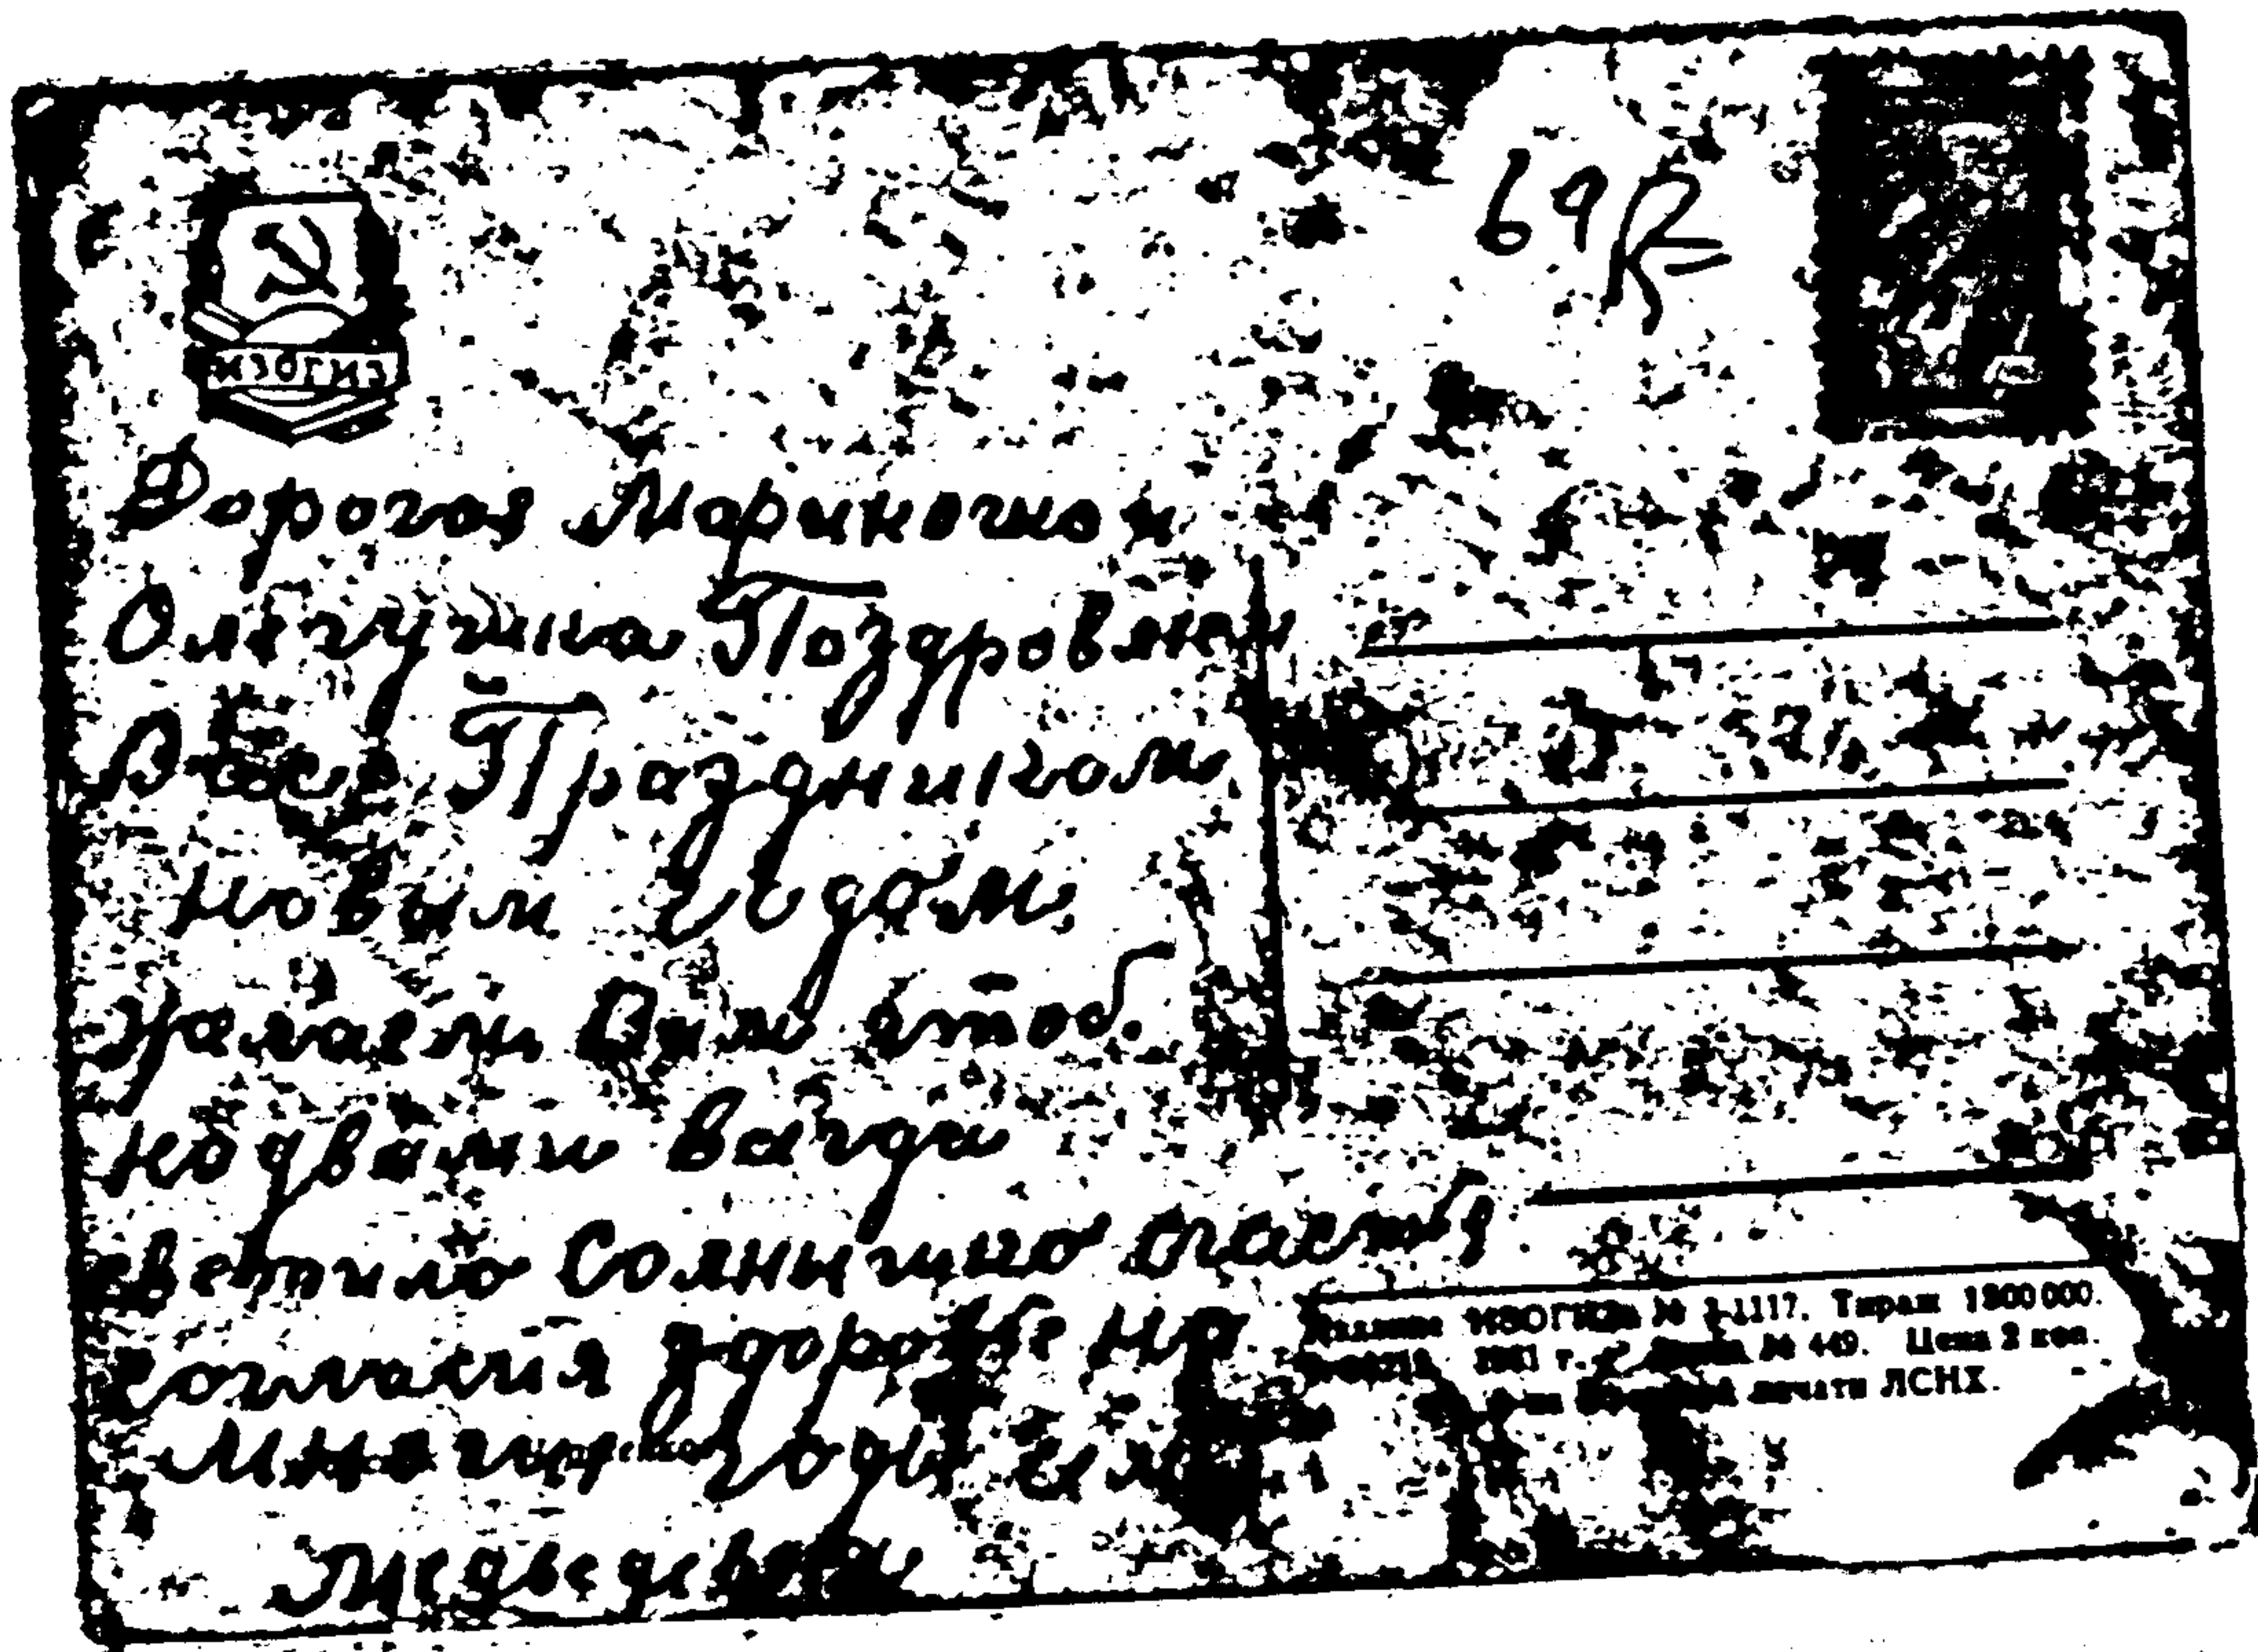 69
ИЗОГИЗ
Дорогая Мариночка и
Ольгушка Поздровляем
Вас Праздником
новым годом,
Желаем Вам чтоб.
надвами всигда
светило Солнышко счастья
согласия здоровье на
многие годы
Медведевы
ИЗОГИЗа № 3-1117. Тираж 1800000.
1961 г. № 449. Цена 2 коп.
печати ЛСНХ.